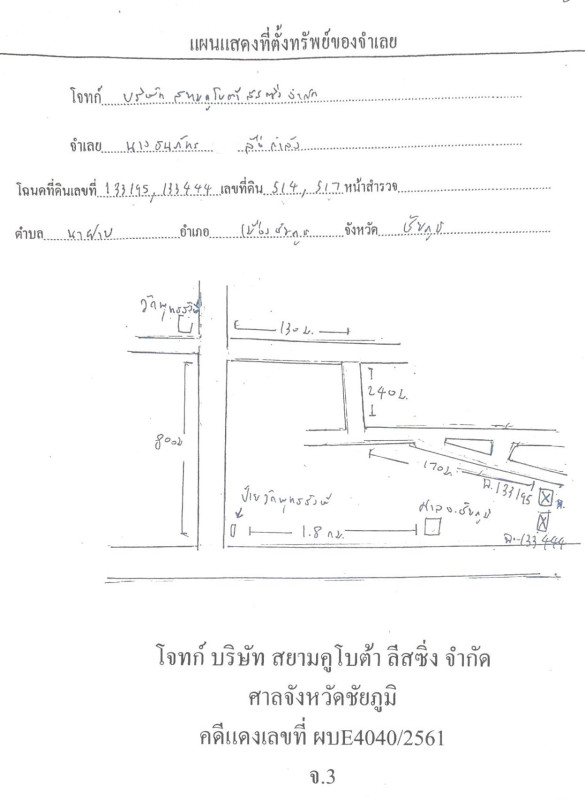 แผนแสดงที่ตั้งทรัพย์ของจำเลย
โจทก์ บริษัท สยามคูโบต้า ลีสซิ่ง จำกัด
จำเลย นาง ธนภัทร
โฉนดที่ดินเลขที่ 133195, 133444 เลขที่ดิน 514, 517 หน้าสำรวจ
ตำบล นาฝาย อำเภอ เมืองชัยภูมิ จังหวัด ชัยภูมิ
130 ม.
240 ม.
800 ม
170 ม.
ฉ.133195
ศาล จ.ชัยภูมิ
1.8 กม.
ฉ.133444
โจทก์ บริษัท สยามคูโบต้า ลีสซิ่ง จำกัด
ศาลจังหวัดชัยภูมิ
คดีแดงเลขที่ ผบE4040/2561
จ.3